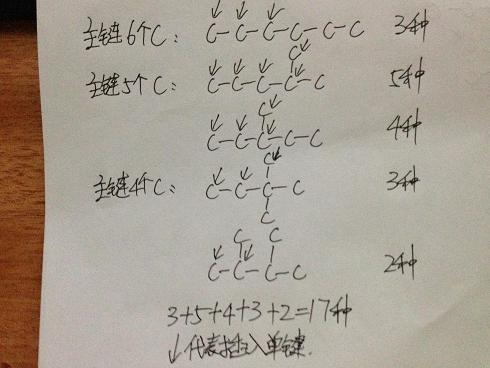 主链6个C: C-C-C-C-C-C 3种
C
主链5个C: C-C-C-C-C 5种
C
C-C-C-C-C 4种
C
主链4个C: C-C-C-C 3种
C
C C
C-C-C-C 2种
3+5+4+3+2=17种
↓代表插入单键.